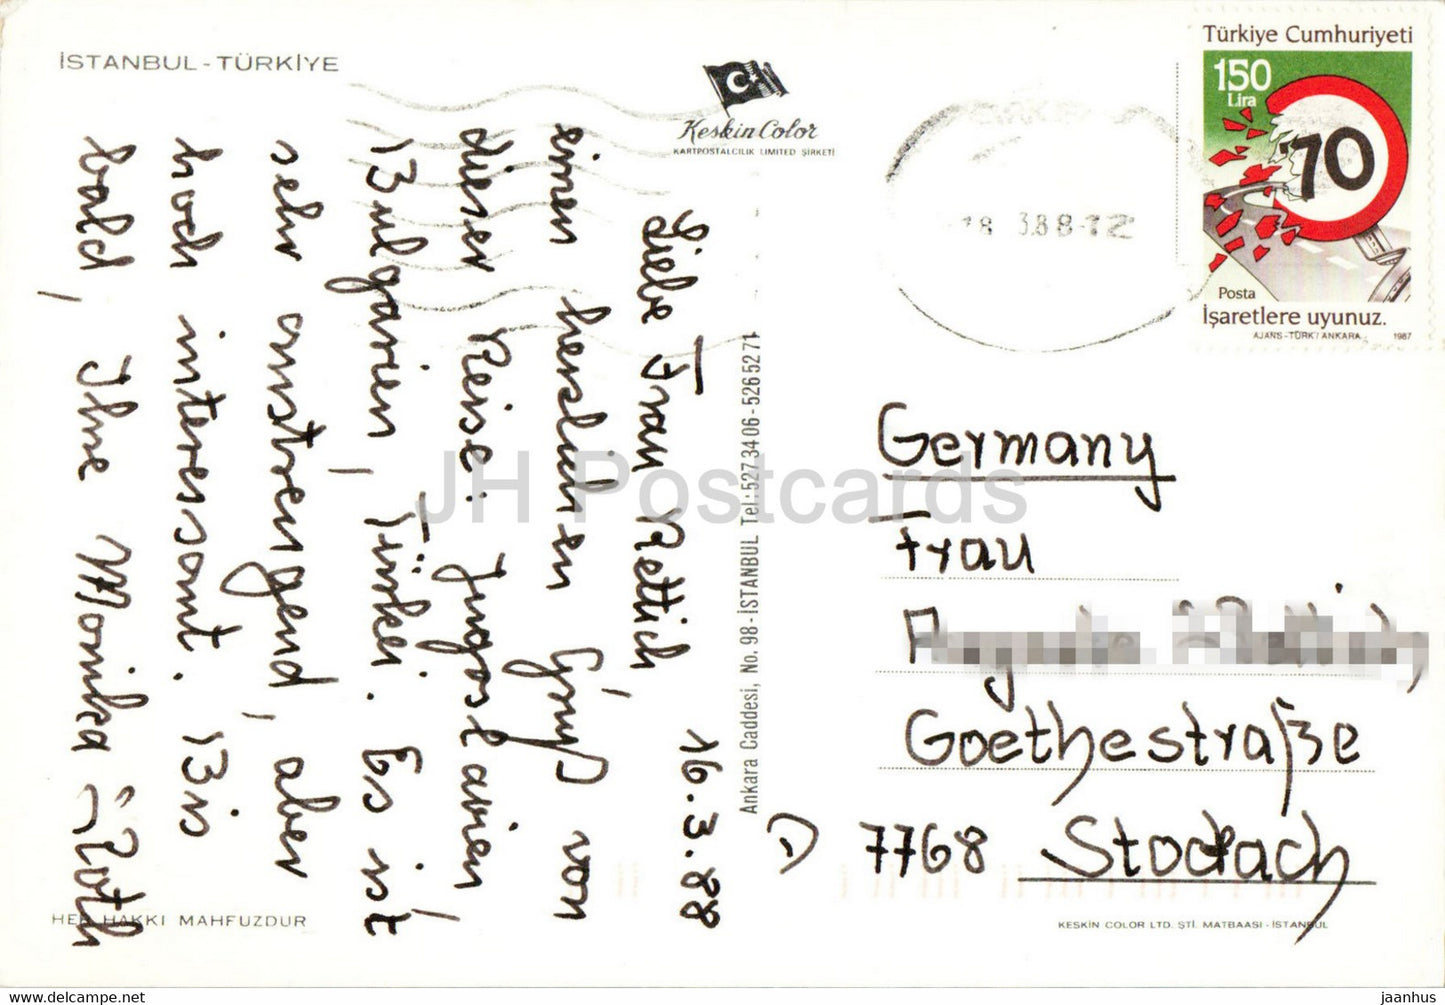 İSTANBUL - TÜRKİYE
Keskin Color
KARTPOSTALCILIK LIMITED ŞİRKETİ
16.3.88
Liebe Frau Rettich,
einen herzlichen Gruß von
dieser Reise: Jugoslavien,
Bulgarien, Türkei. Es ist
sehr anstrengend, aber
hoch interessant. Bis
bald, Ihre Monika Roth
HER HAKKI MAHFUZDUR
Ankara Caddesi, No. 98 - İSTANBUL Tel: 527 34 06 - 526 52 71
18 3.88-12
Türkiye Cumhuriyeti
150
Lira
70
Posta
İşaretlere uyunuz.
AJANS-TÜRK/ANKARA 1987
Germany
Frau
Goethestraße
D 7768 Stockach
KESKİN COLOR LTD. ŞTİ. MATBAASI - İSTANBUL
JH Postcards
https://www.delcampe.net
jaanhus